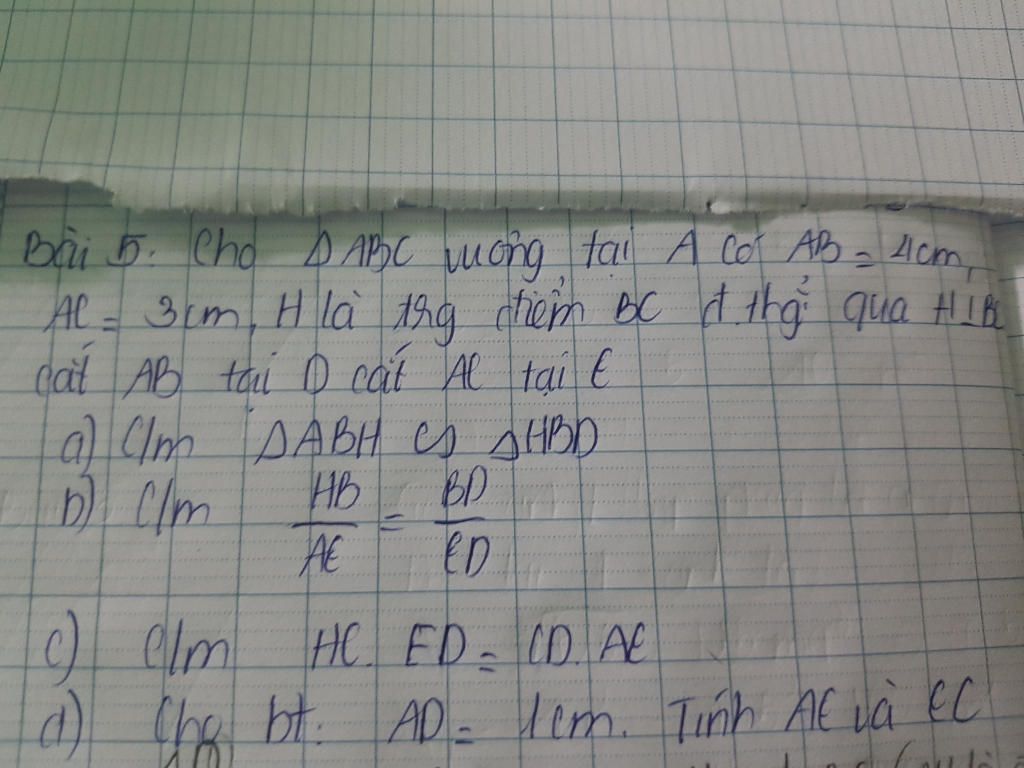 Bài 5. Cho ΔABC vuông tại A có AB = 4cm,
AC = 3cm, H là trg điểm BC đ.thg̉ qua H⊥BC
cắt AB tại D cắt AC tại E
a) C/m ΔABH ᔕ ΔHBD
b) C/m HB/AE = BD/ED
c) C/m HC. ED = CD. AE
d) Cho bt: AD = 1cm. Tính AE và EC